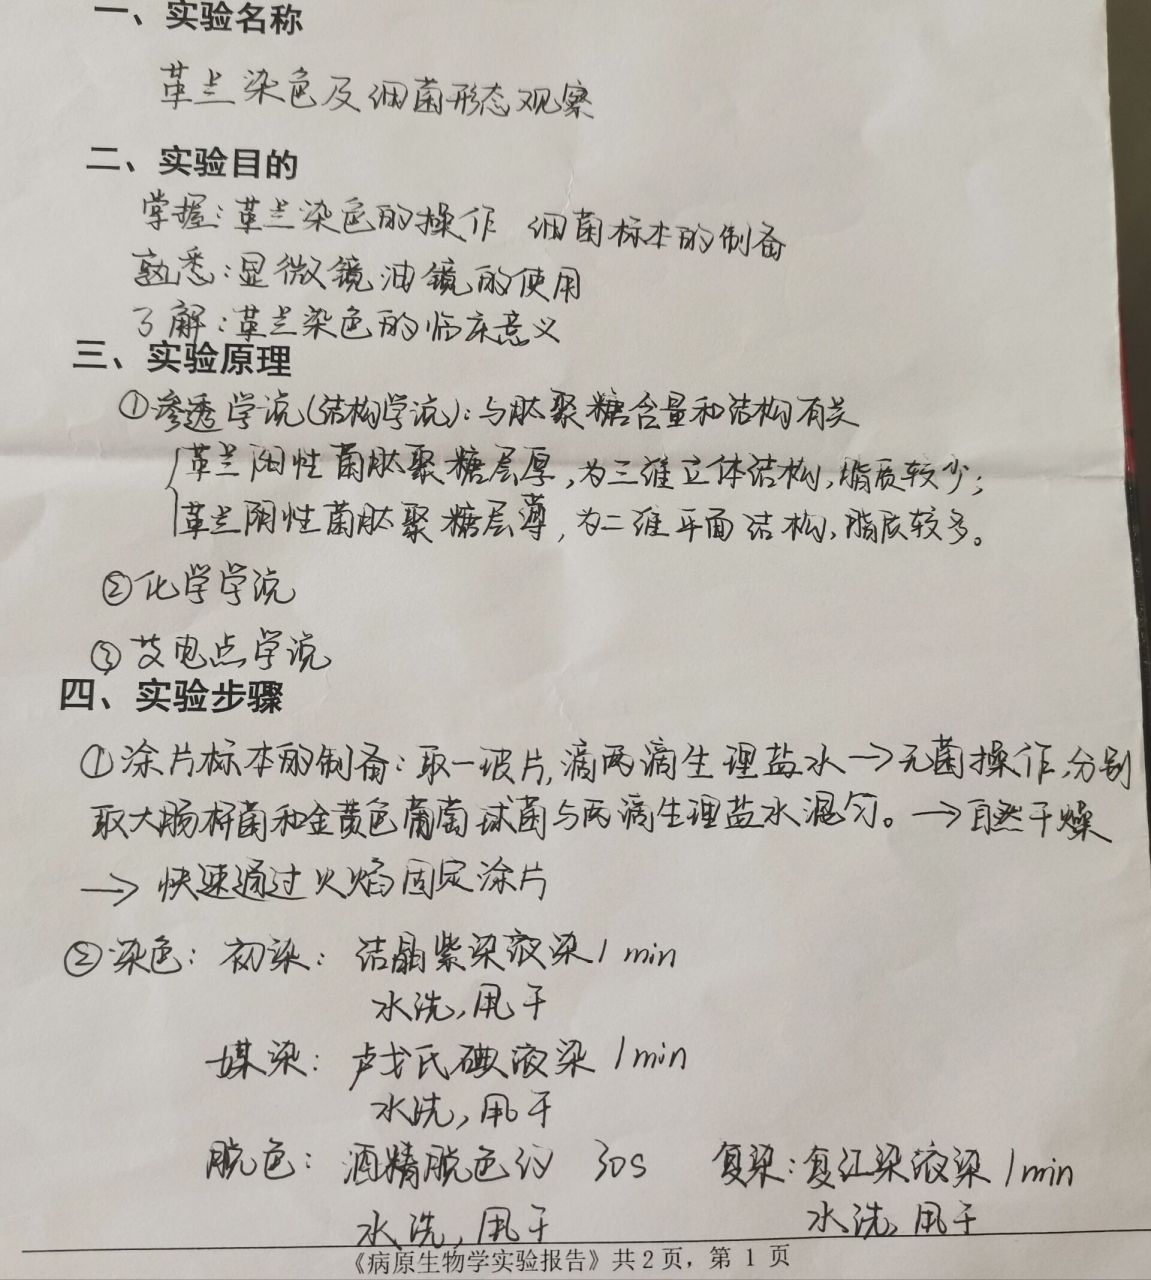 一、实验名称
革兰染色及细菌形态观察
二、实验目的
掌握：革兰染色的操作 细菌标本的制备
熟悉：显微镜油镜的使用
了解：革兰染色的临床意义
三、实验原理
①渗透学说(结构学说)：与肽聚糖含量和结构有关
革兰阳性菌肽聚糖层厚，为三维立体结构，脂质较少；
革兰阴性菌肽聚糖层薄，为二维平面结构，脂质较多。
②化学学说
③ 电点学说
四、实验步骤
①涂片标本的制备：取一玻片，滴两滴生理盐水→无菌操作，分别
取大肠杆菌和金黄色葡萄球菌与两滴生理盐水混匀。→自然干燥
→快速通过火焰固定涂片
②染色：初染：结晶紫染液染1min
水洗，甩干
媒染：卢戈氏碘液染1min
水洗，甩干
脱色：酒精脱色约 30s 复染：复红染液染1min
水洗，甩干 水洗，甩干
《病原生物学实验报告》共2页，第 1 页